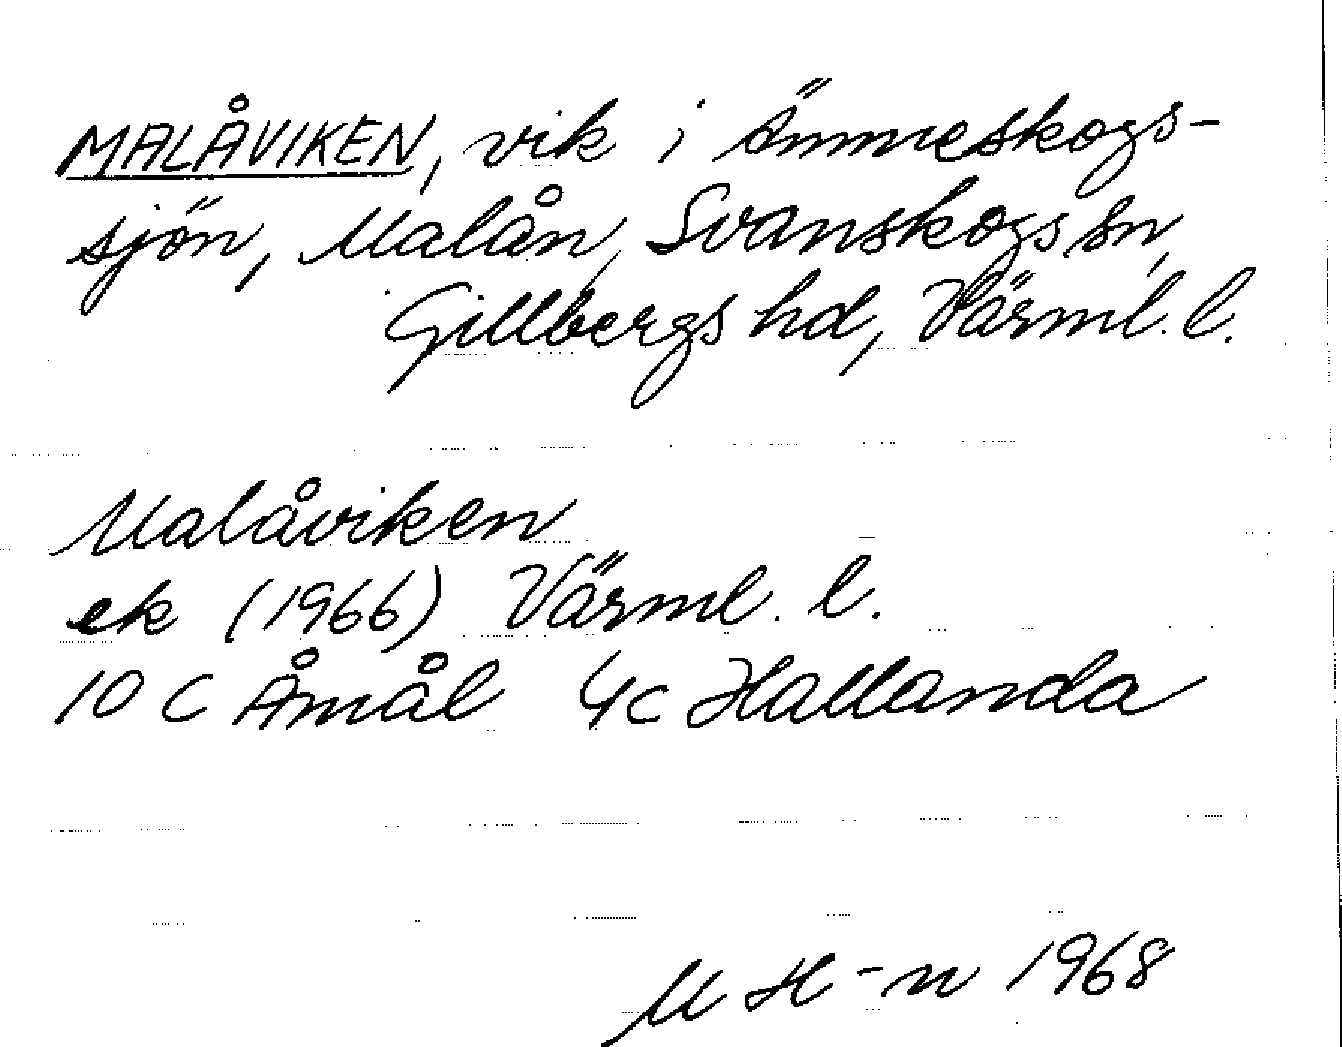 MALÅVIKEN, vik i Ämmeskogs-
sjön, Malån, Svanskogs sn,
Gillbergs hd, Värml. l.
Malåviken
ek (1966) Värml. l.
10 C Åmål 4c Hallanda
M H-n 1968